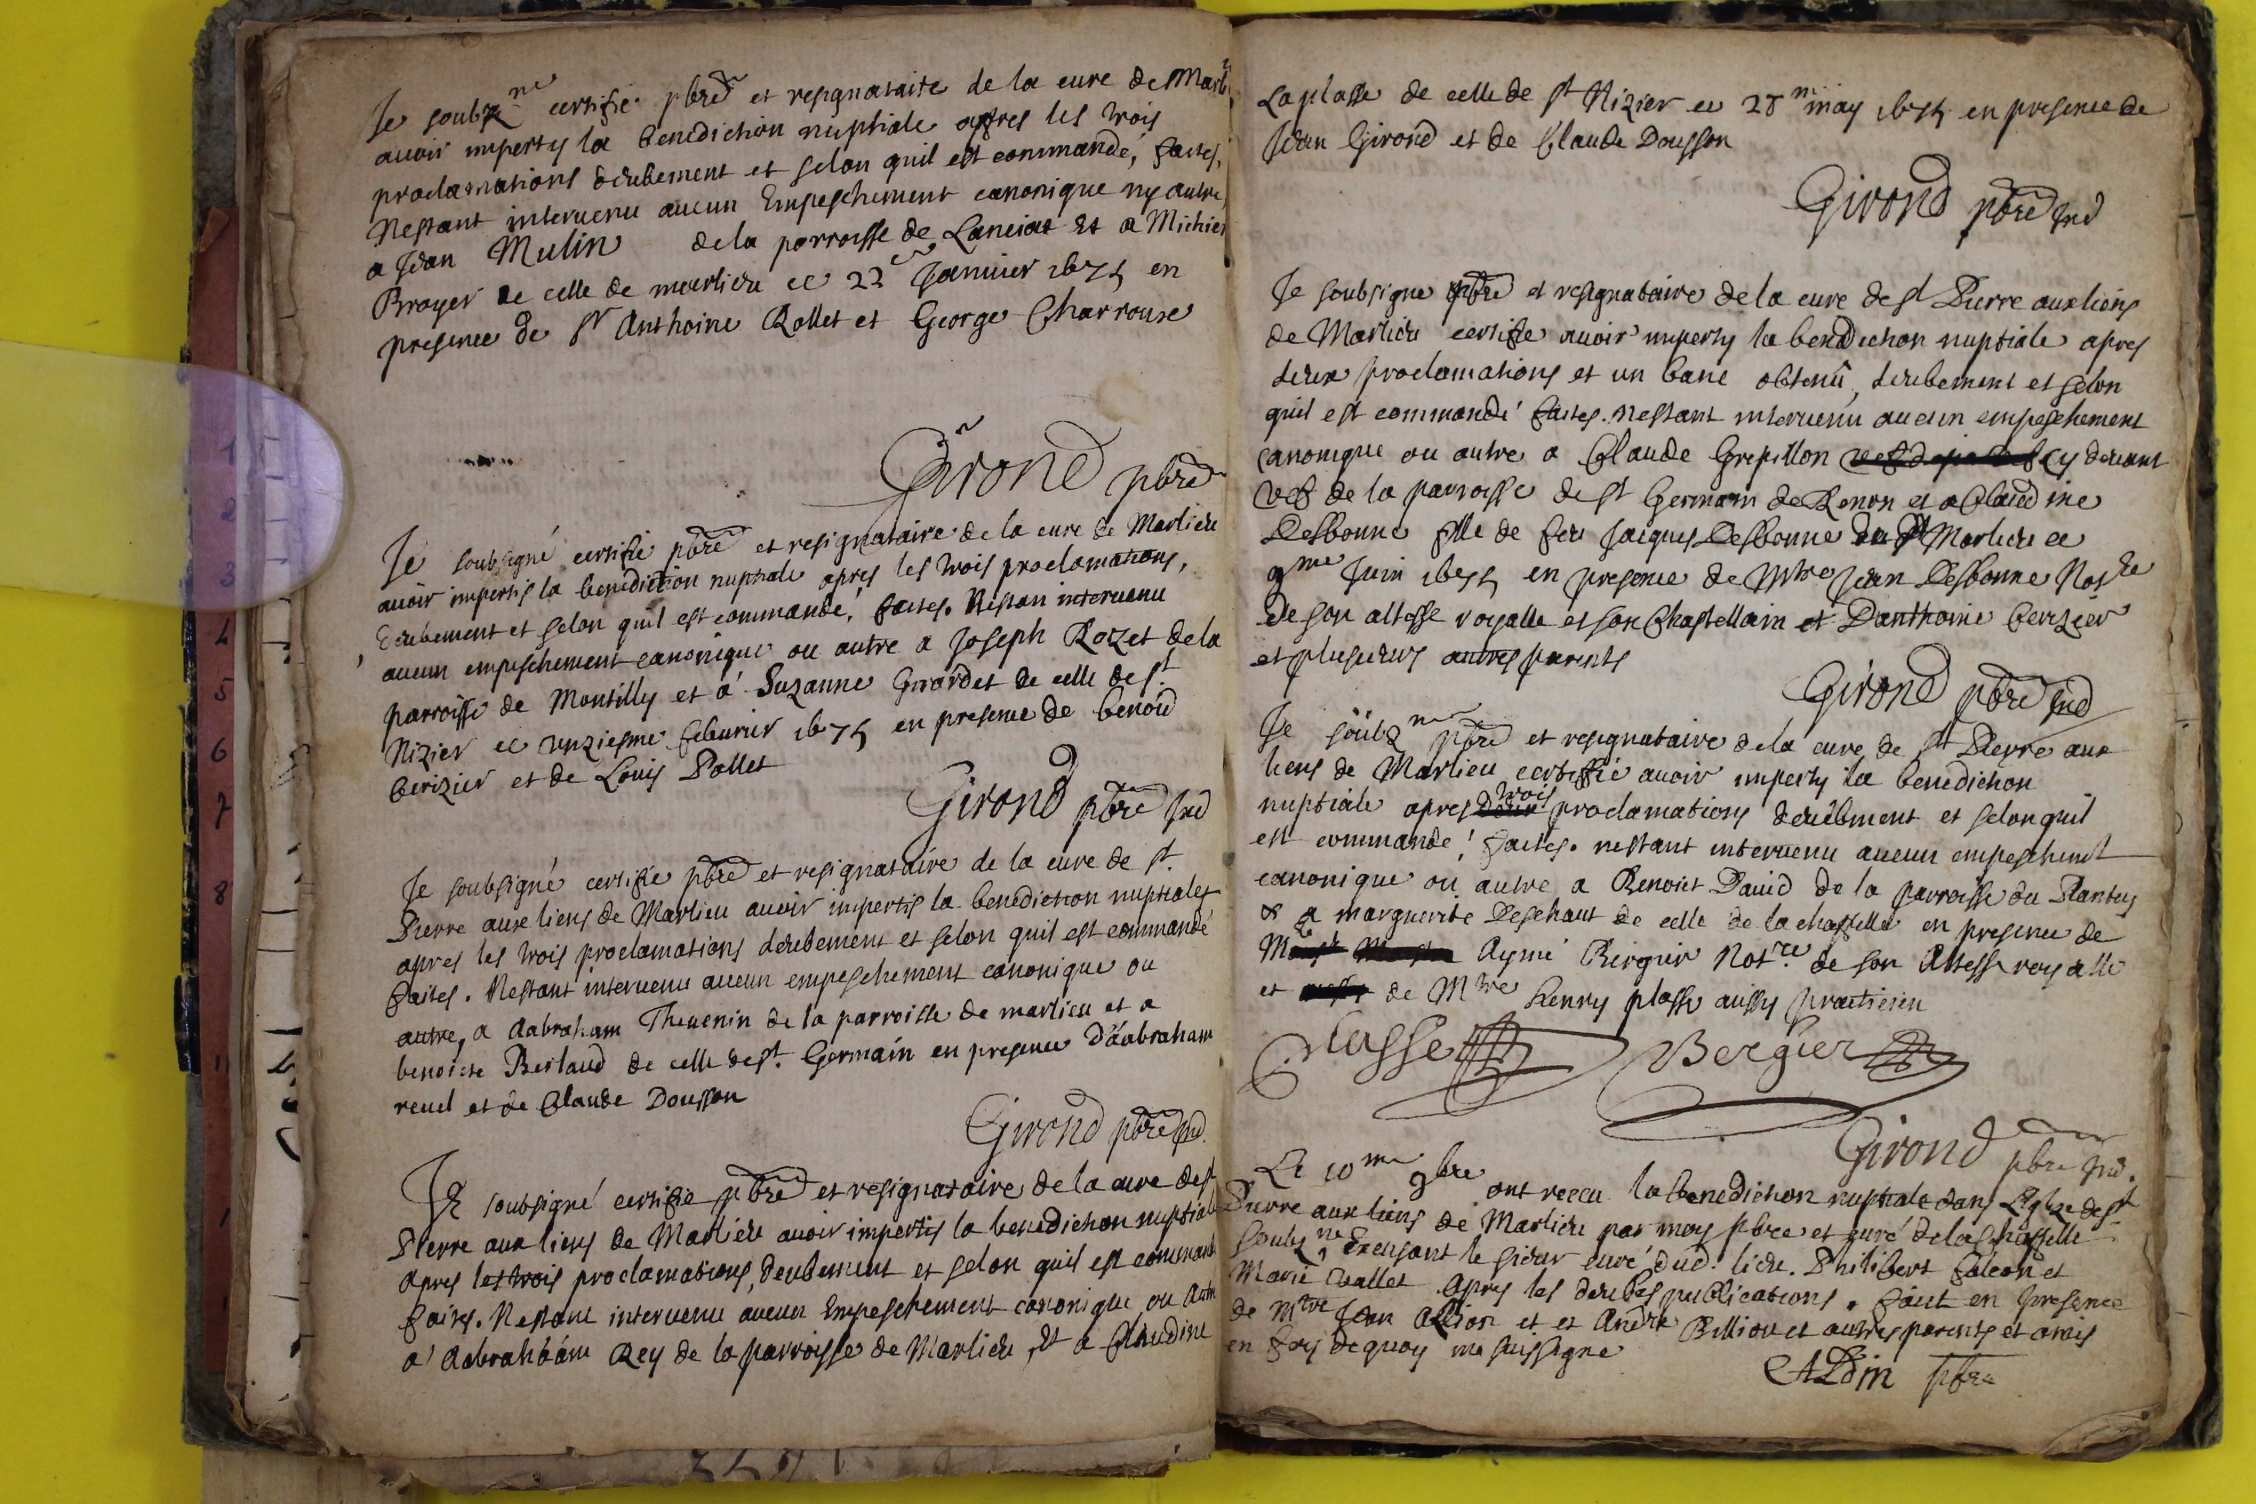 Je soubz.ne certifie pbre et resignataire de la cure de Marli
avoir imperty la benediction nuptiale apres les trois
proclamations deubement et selon quil est commandé, faites,
Nestant intervenu aucun Empeschement canonique ny autre
a Jean Mulin de la parroisse de Lanciat et a Michie
Broyer de celle de marlieu ce 22e Janvier 1675 en
presence de Sr Anthoine Rollet et George Charrouse
Girond pbre
Je soubsigné certifie pbre et resignataire de la cure de Marlieu
avoir impertis la benediction nuptiale apres les trois proclamations,
deubement et selon quil est commandé, faites. Nestan intervenu
aucun empeschement canonique ou autre a Joseph Rozet de la
parroisse de Montilly et a Suzanne Girardet de celle de St.
Nizier ce unziesme febvrier 1675 en presence de benoid
berizier et de Louis Pollet
Girond pbre ind
Je soubsigné certifie pbre et resignataire de la cure de St.
Pierre aux liens de Marlieu avoir impertis la benediction nuptiales
apres les trois proclamations deubement et selon quil est commandé
faites. Nestant intervenu aucun empeschement canonique ou
autre, a Aabraham Thevenin de la parroisse de marlieu et a
benoiste Berlaud de celle de St. Germain en presence D'aabraham
revel et de Claude Dousson
Girond pbre ind.
Je soubsigné certifie pbre et resignataire de la cure de St
Pierre aux liens de Marlieu avoir impertis la benediction nuptiale
Apres les trois proclamations, deubement et selon quil est commandé
faites. Nestant intervenu aucun Empeschement canonique ou Autre
a Aabraham Rey de la parroisse de Marlieu, et a Claudine
Laplasse de celle de St Nizier ce 28me may 1675 en presence de
Jean Girond et de Claude Dousson
Girond pbre ind
Je soubsigne pbre et resignataire de la cure de St Pierre aux liens
de Marlieu certifie avoir imperty la benediction nuptiale apres
deux proclamations et un banc obtenu, deubement et selon
quil est commandé faites. Nestant intervenu aucun empeschement
canonique ou autre a Claude Grepillon cy devant
vef de la parroisse de St Germain de Renon et a Claudine
Desbonne fille de feu Jacques Desbonne du dt Marlieu ce
9me Juin 1675 en presence de Mtre Jean Desbonne Nore
de son altesse royalle et son Chastellain et Danthoine berizier
et plusieurs autres parents
Girond pbre ind
Je soubz.ne pbre et resignataire de la cure de St Pierre aux
liens de Marlieu certiffie avoir imperty la benediction
nuptiale apres deux trois proclamations deuebment et selon quil
est commandé! faites. nestant intervenu aucun empeschement
canonique ou autre a Benoict David de la parroisse du Plantey
et a marguerite Deschaut de celle de la chapelle en presence de
Mre Aymé Birguir Notre de son Altesse royalle
et de Mtre henry plasse aussy practicien
Plasse Bergier
Girond pbre ind.
Le 10me 9bre ont receu la benediction nuptiale dans Leglize de St
Pierre aux liens de Marlieu par moy pbre et curé de la Chappelle
soubz.ne, Excusant le sieur curé dud. lieu. Philibert falcon et
Marie Vallet Apres les deubes publications. faict en presence
de Mtre Jean Allion et et André Billion et autres parents et amis
en foy de quoy me suissigne
Aldin pbre